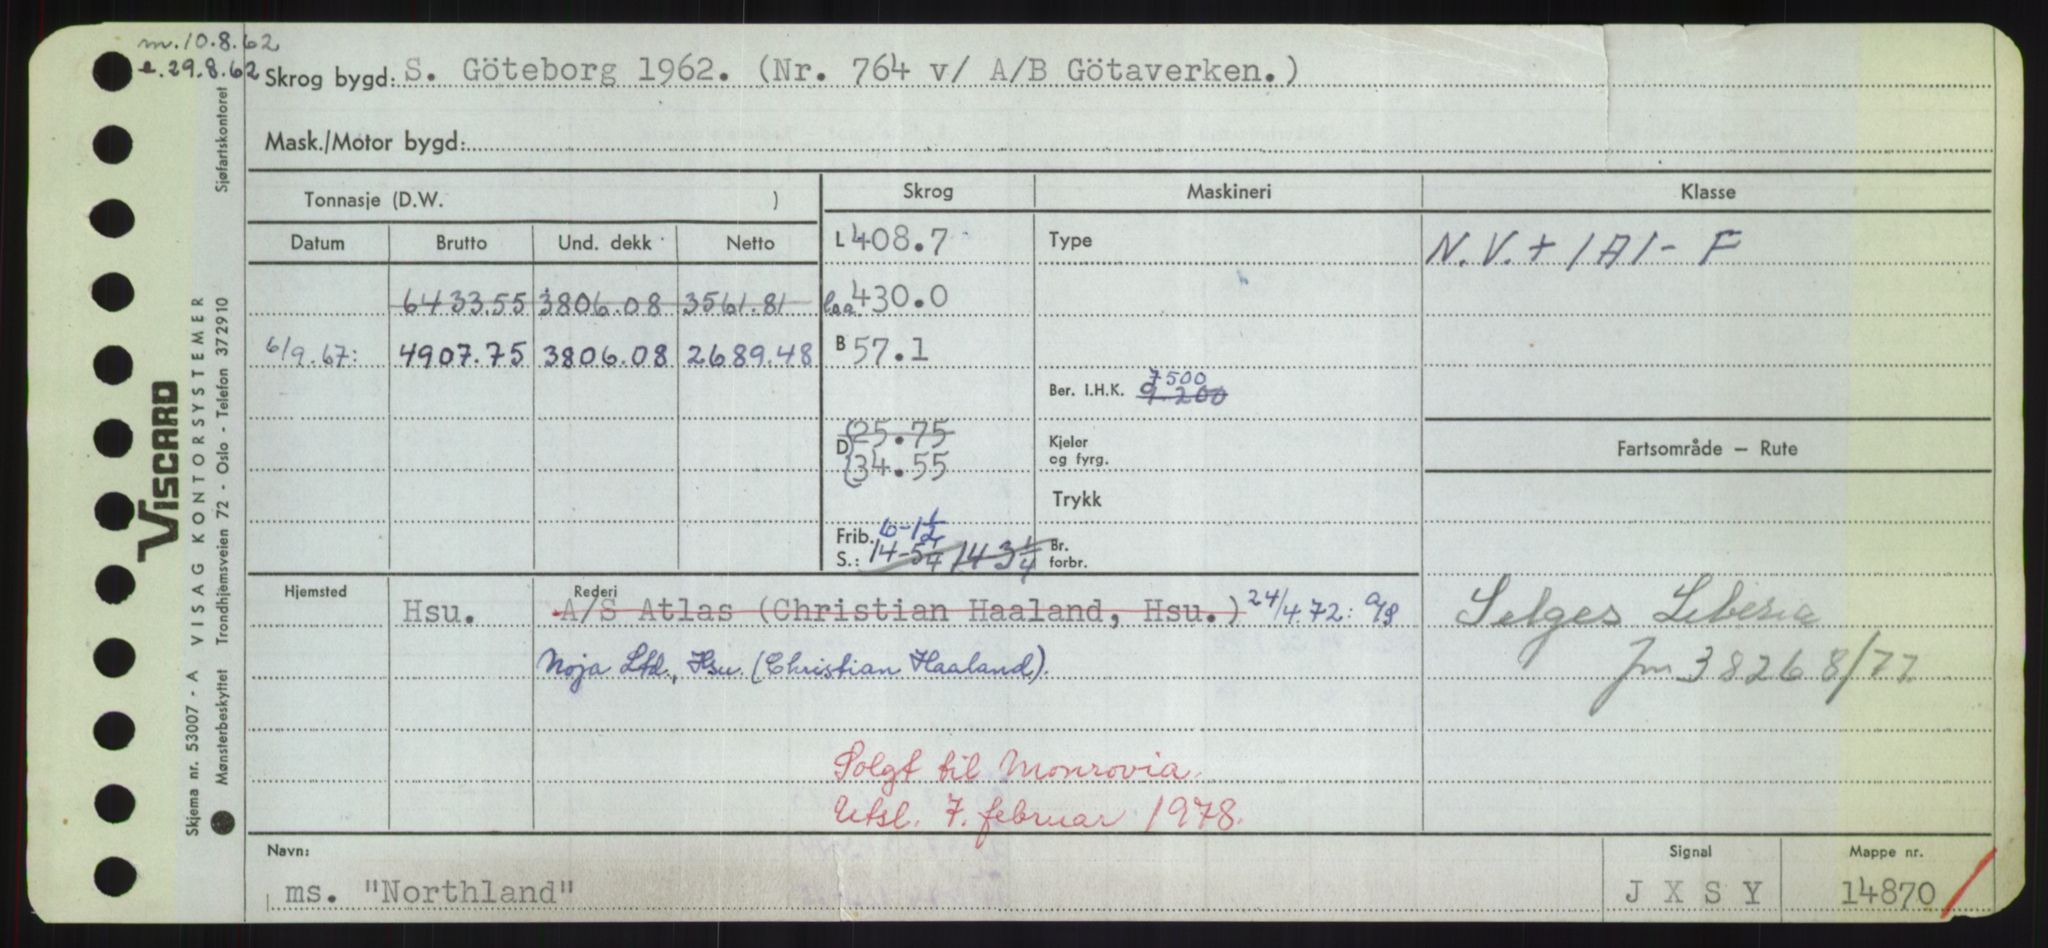 m.10.8.62
e.29.8.62
Skrog bygd: S. Göteborg 1962. (Nr. 764 v/ A/B Götaverken.)
Mask./Motor bygd:
Tonnasje (D.W. )
Skrog
Maskineri
Klasse
Datum Brutto Und. dekk Netto
L 408.7
Type
N.V. + 1A1 - F
6433.55 3806.08 3561.81
Loa 430.0
6/9.67: 4907.75 3806.08 2689.48
B 57.1
7500
Ber. I.H.K. 9.200
D (25.75
(34.55
Kjeler
og fyrg.
Fartsområde — Rute
Trykk
Frib. 10-1 1/2
S.: 14-5 1/4 14 3 1/4
Br.
forbr.
Hjemsted
Rederi
Hsu. A/S Atlas (Christian Haaland, Hsu.) 24/4.72: a/s
Noja Ltd., Hsu. (Christian Haaland).
Selges Liberia
Jnr 38268/77
Solgt til Monrovia.
Utsl. 7. februar 1978.
Navn:
Signal
Mappe nr.
ms. "Northland" J X S Y 14870
VISCARD
Skjema nr. 53007 - A VISAG KONTORSYSTEMER
Mønsterbeskyttet Trondhjemsveien 72 - Oslo - Telefon 372910 Sjøfartskontoret